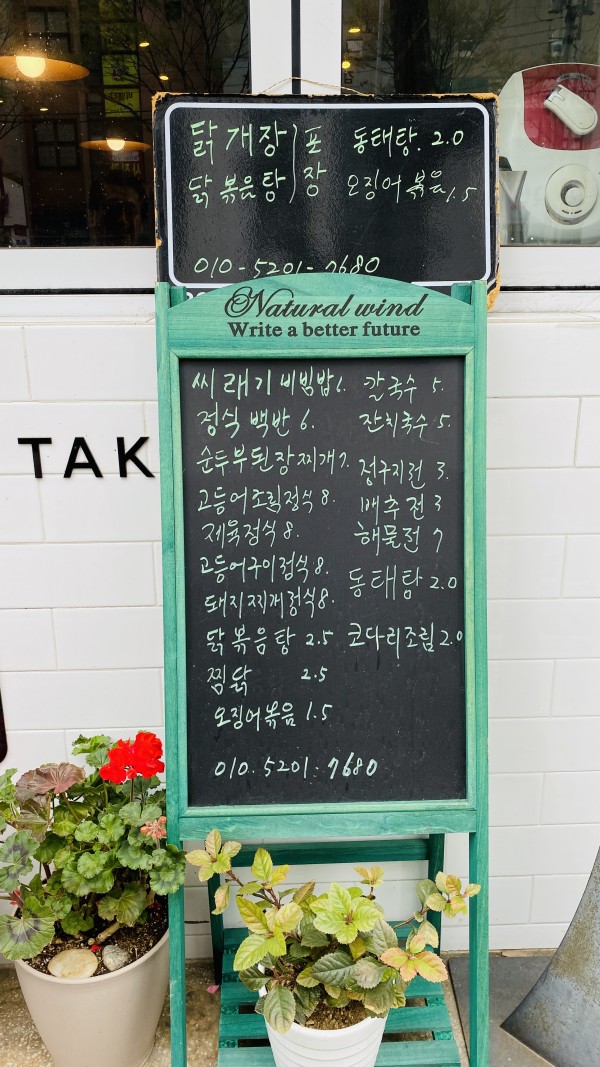 닭개장 ) 포 동태탕. 2.0
닭볶음탕 ) 장 오징어볶음 1.5
010-5201-7680
Natural wind
Write a better future
씨래기비빔밥 6. 칼국수 5.
정식 백반 6. 잔치국수 5.
순두부된장찌개 7. 정구지전 3.
고등어조림정식 8. 배추전 3
제육정식 8. 해물전 7
고등어구이정식 8. 동태탕 2.0
돼지찌개정식 8.
닭볶음탕 2.5 코다리조림 2.0
찜닭 2.5
오징어볶음 1.5
010. 5201. 7680
TAK